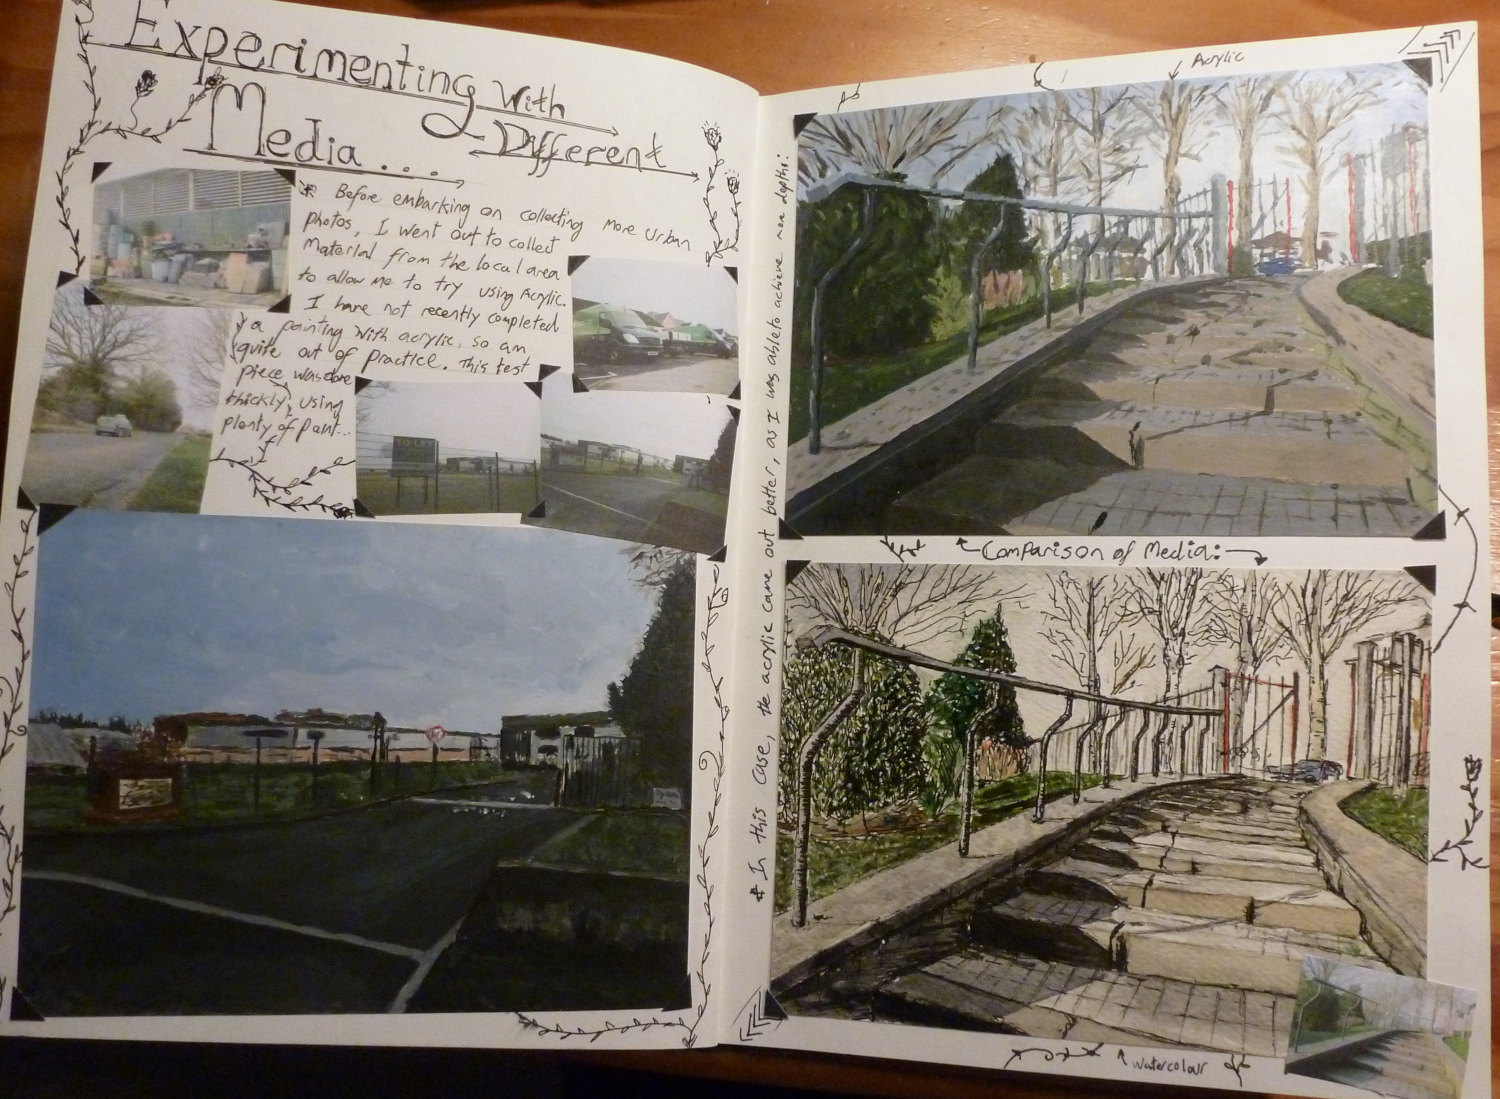 Experimenting With
Different
Media...
* Before embarking on collecting more urban
photos, I went out to collect
material from the local area
to allow me to try using Acrylic.
I have not recently completed
a painting with acrylic, so am
quite out of practice. This test
piece was done
thickly, using
plenty of paint...
TO LET
* In this case, the acrylic came out better, as I was able to achieve more depth:
Acrylic
Comparison of Media:
Watercolour